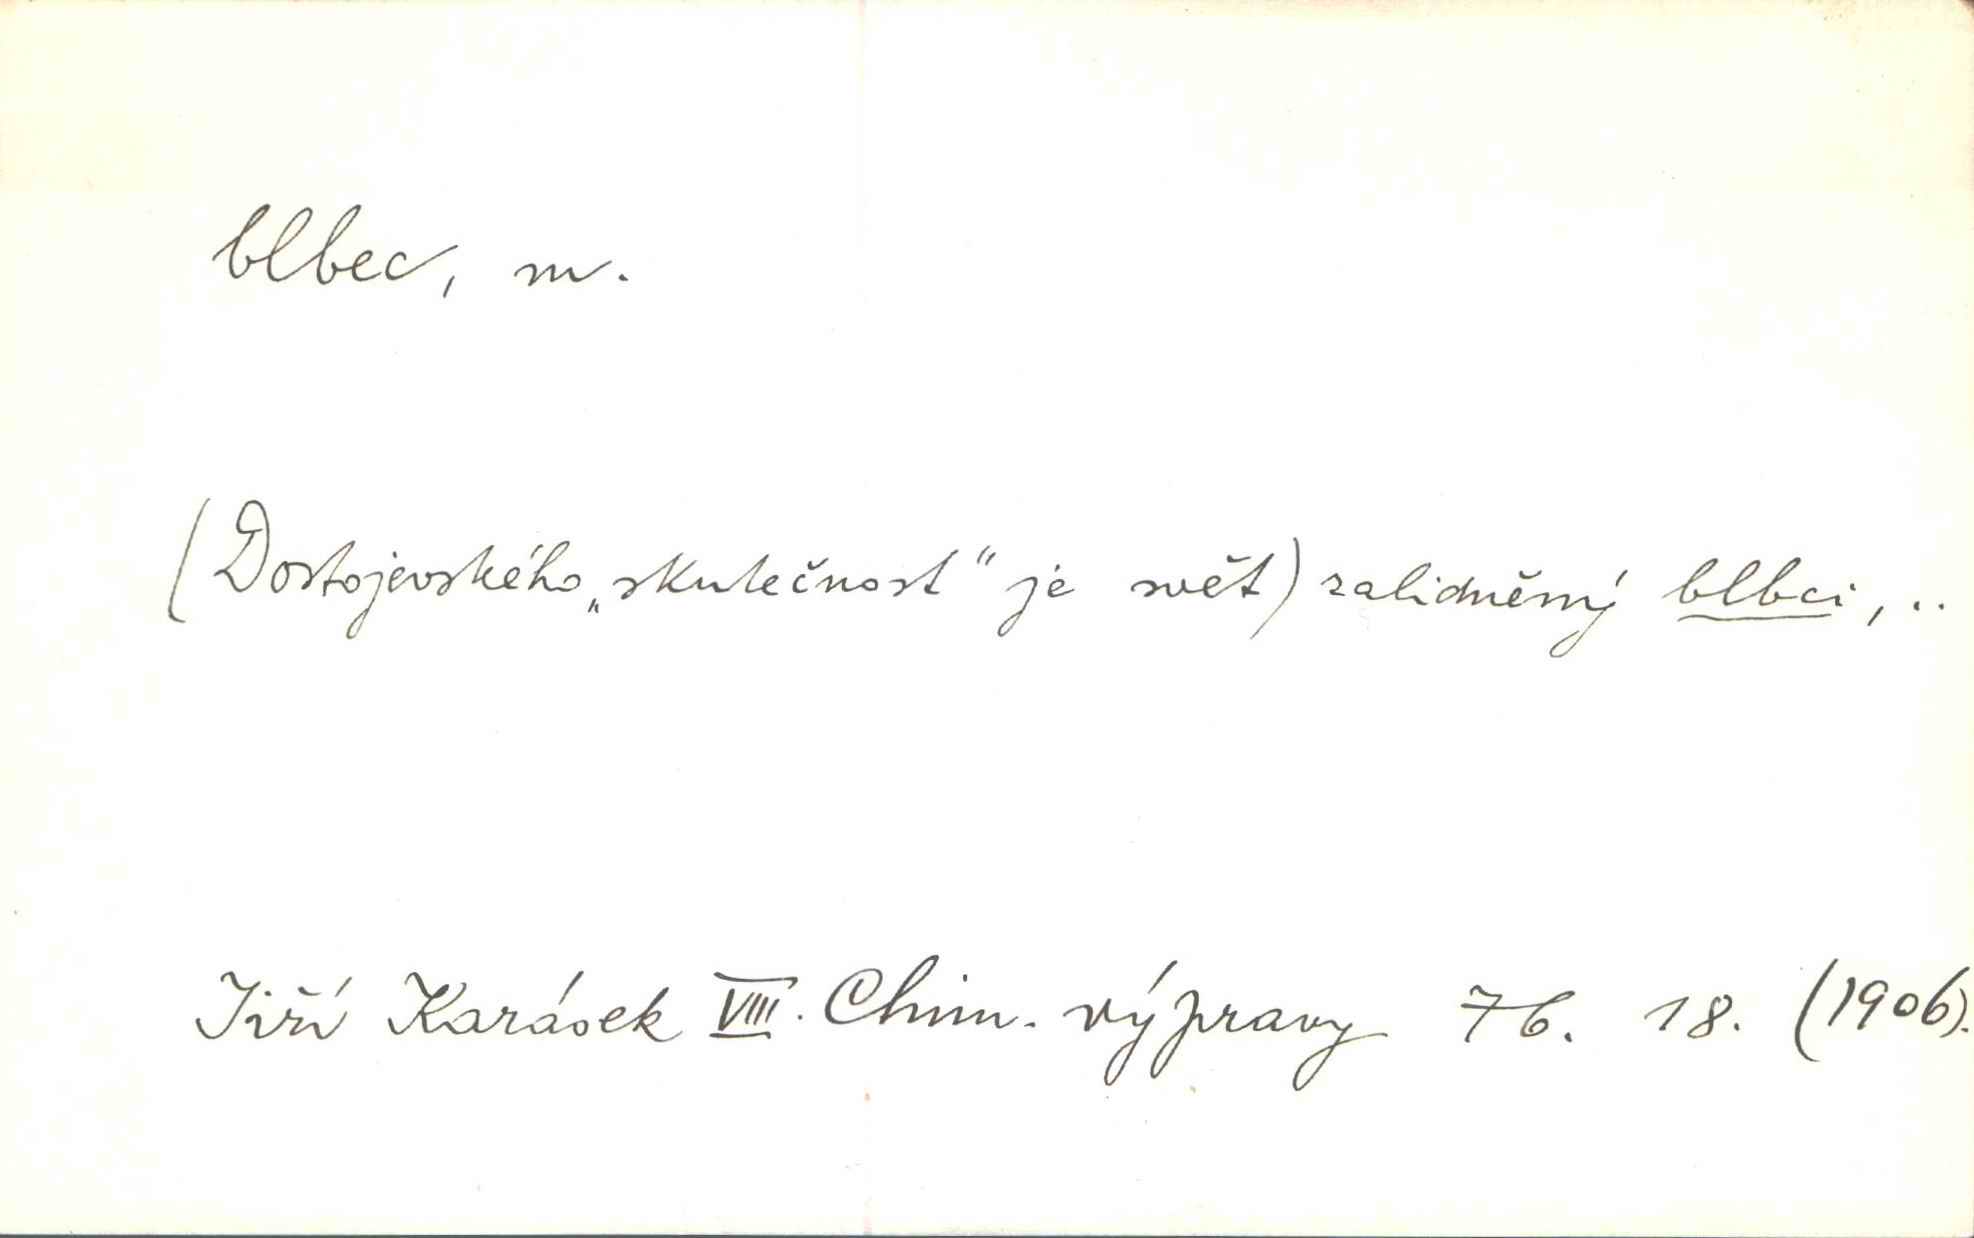 blbec, m.
(Dostojevského „skutečnost" je svět) zalidněný blbci, ..
Jiří Karásek VIII. Chim. výpravy 76. 18. (1906).